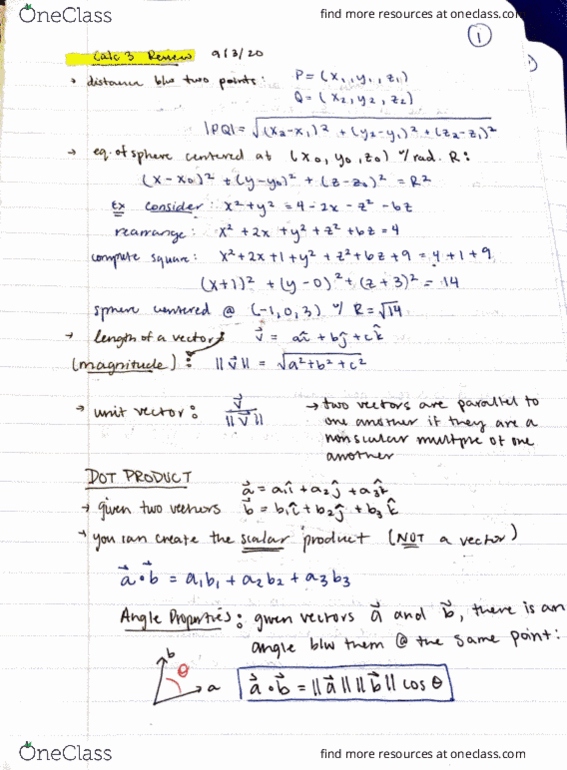 OneClass
find more resources at oneclass.com
1
Calc 3 Review 9/3/20
• distance b/w two points: P = (x₁, y₁, z₁)
Q = (x₂, y₂, z₂)
|PQ| = √(x₂-x₁)² + (y₂-y₁)² + (z₂-z₁)²
→ eq. of sphere centered at (x₀, y₀, z₀) w/ rad. R:
(x-x₀)² + (y-y₀)² + (z-z₀)² = R²
Ex consider: x² + y² = 4 - 2x - z² - 6z
rearrange: x² + 2x + y² + z² + 6z = 4
compute square: x² + 2x + 1 + y² + z² + 6z + 9 = 4 + 1 + 9
(x+1)² + (y-0)² + (z+3)² = 14
sphere centered @ (-1, 0, 3) w/ R = √14
→ length of a vector v⃗ = aî + bĵ + ck̂
(magnitude): ||v⃗|| = √a² + b² + c²
→ unit vector: v⃗/||v⃗|| → two vectors are parallel to
one another if they are a
nonscalar multple of one
another
DOT PRODUCT
a⃗ = a₁î + a₂ĵ + a₃k̂
→ given two vectors b⃗ = b₁î + b₂ĵ + b₃k̂
→ you can create the scalar product (NOT a vector)
a⃗ • b⃗ = a₁b₁ + a₂b₂ + a₃b₃
Angle Properties: given vectors a⃗ and b⃗, there is an
angle b/w them @ the same point:
b
θ
a
a⃗ • b⃗ = ||a⃗|| ||b⃗|| cos θ
OneClass
find more resources at oneclass.com